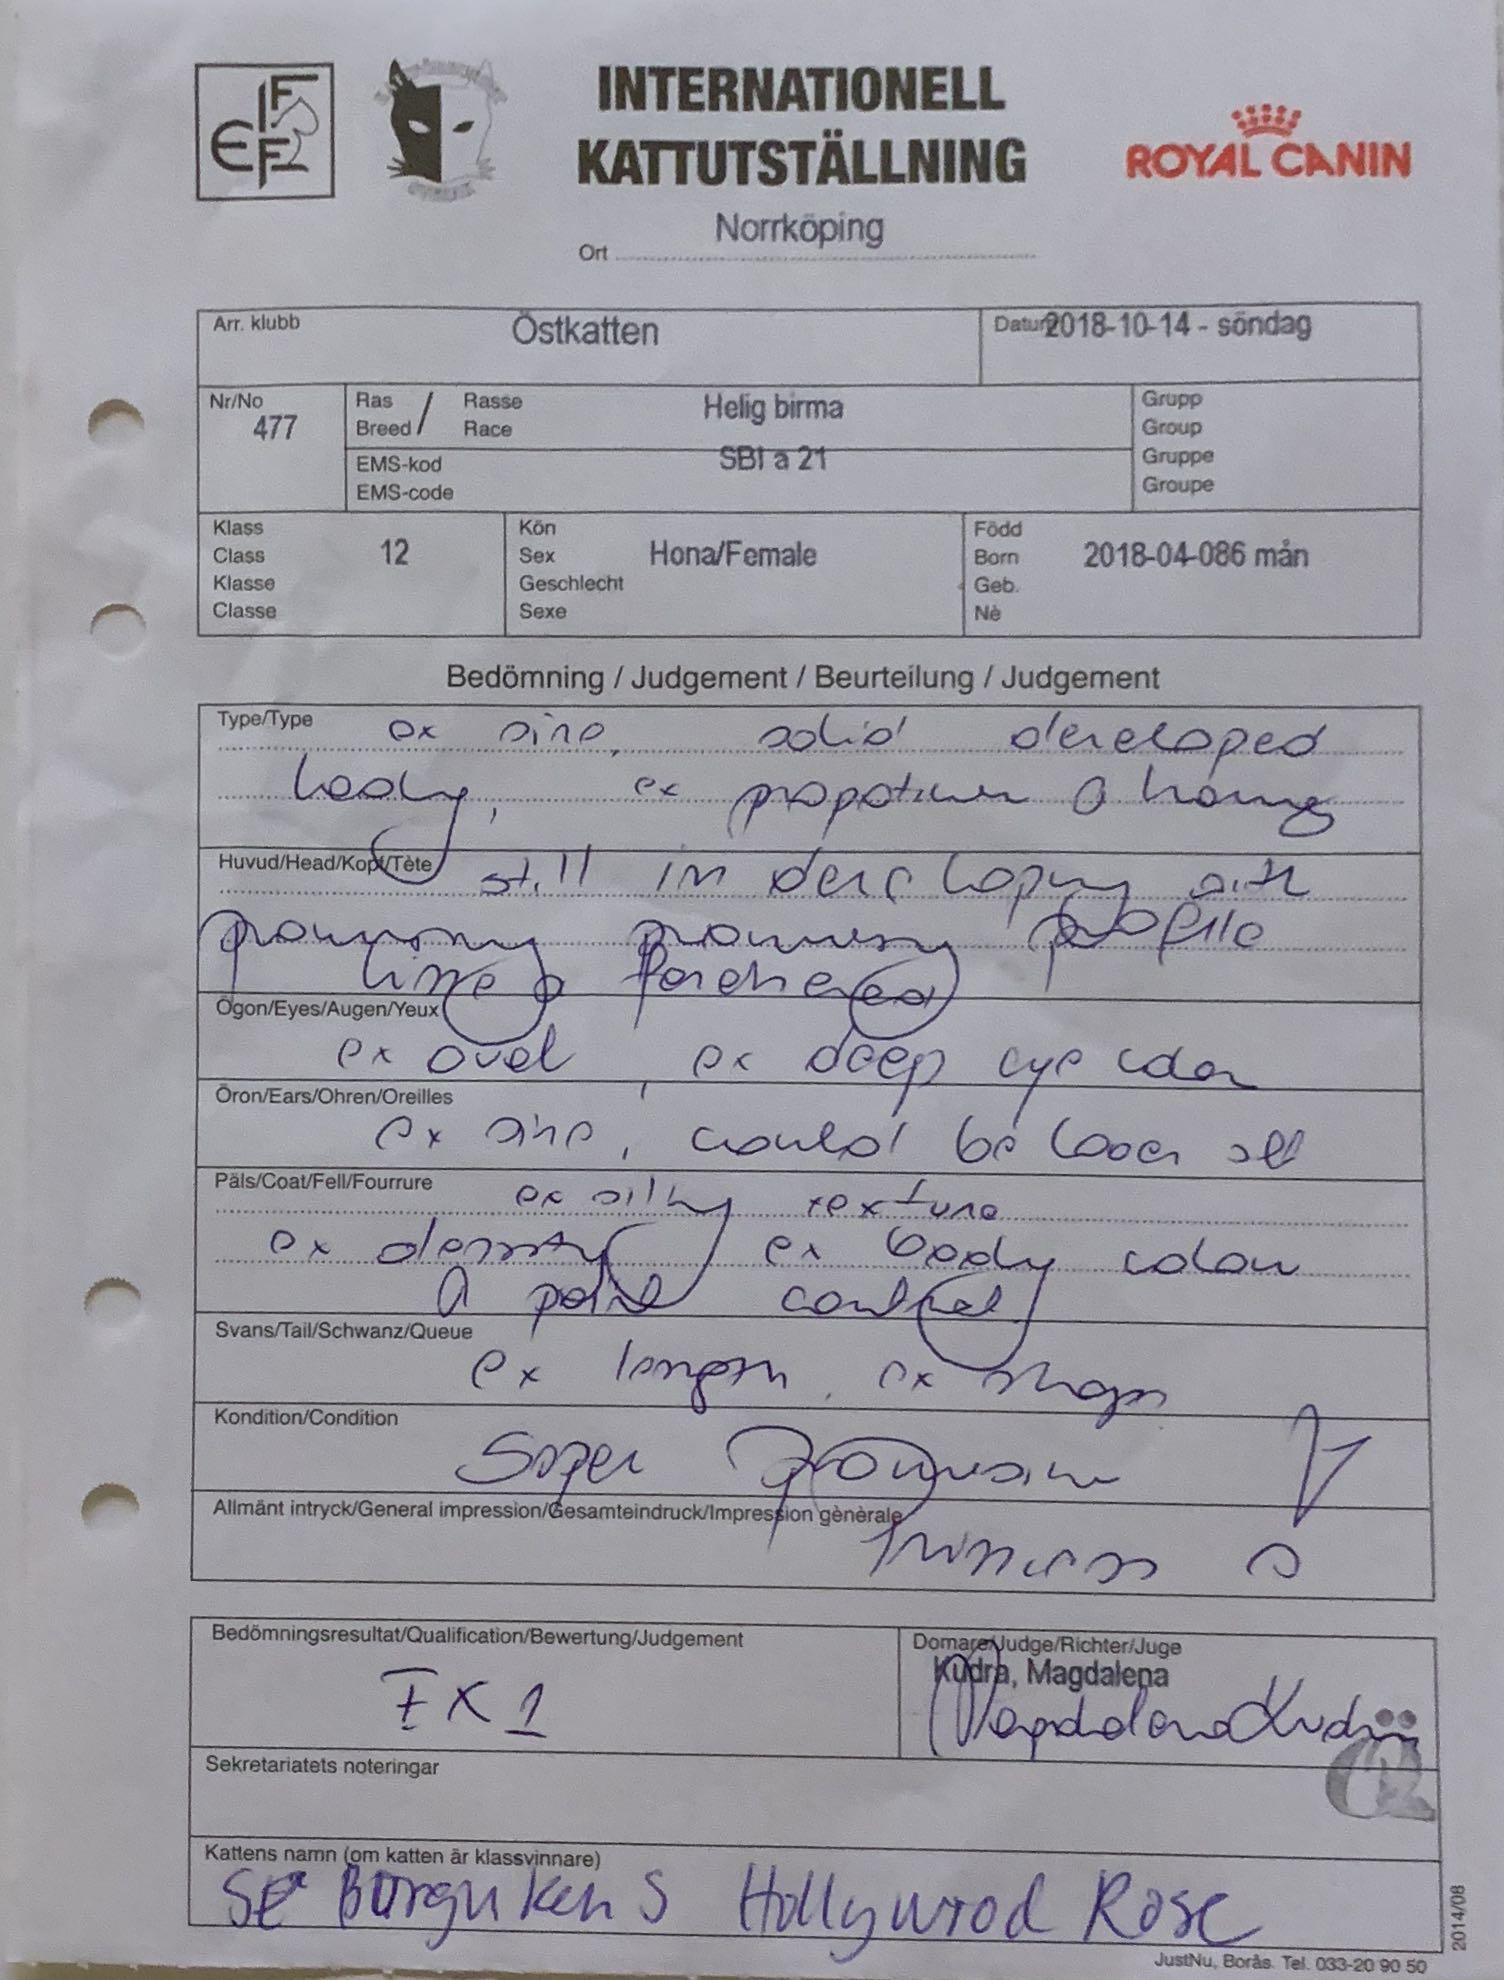 FIFe
INTERNATIONELL
KATTUTSTÄLLNING
ROYAL CANIN
Ort Norrköping
Arr. klubb Östkatten
Datum 2018-10-14 - söndag
Nr/No 477
Ras / Rasse Helig birma
Breed / Race
EMS-kod SBI a 21
EMS-code
Grupp
Group
Gruppe
Groupe
Klass
Class 12
Klasse
Classe
Kön
Sex Hona/Female
Geschlecht
Sexe
Född
Born 2018-04-086 mån
Geb.
Nè
Bedömning / Judgement / Beurteilung / Judgement
Type/Type ex size, solid developed
body, ex
Huvud/Head/Kopf/Tète still in developing with
promising profile
line & forehead
Ögon/Eyes/Augen/Yeux
ex oval, ex deep eye colour
Öron/Ears/Ohren/Oreilles
ex size, could be lower set
Päls/Coat/Fell/Fourrure ex silky texture
ex density ex body colour
& point contrast
Svans/Tail/Schwanz/Queue
ex length, ex shape
Kondition/Condition
Super
Allmänt intryck/General impression/Gesamteindruck/Impression gènèrale
princess
Bedömningsresultat/Qualification/Bewertung/Judgement
EX 1
Domare/Judge/Richter/Juge
Kudra, Magdalena
Magdalena Kudra
Sekretariatets noteringar
Kattens namn (om katten är klassvinnare)
SE Hollywood Rose
2014/08
JustNu, Borås. Tel. 033-20 90 50